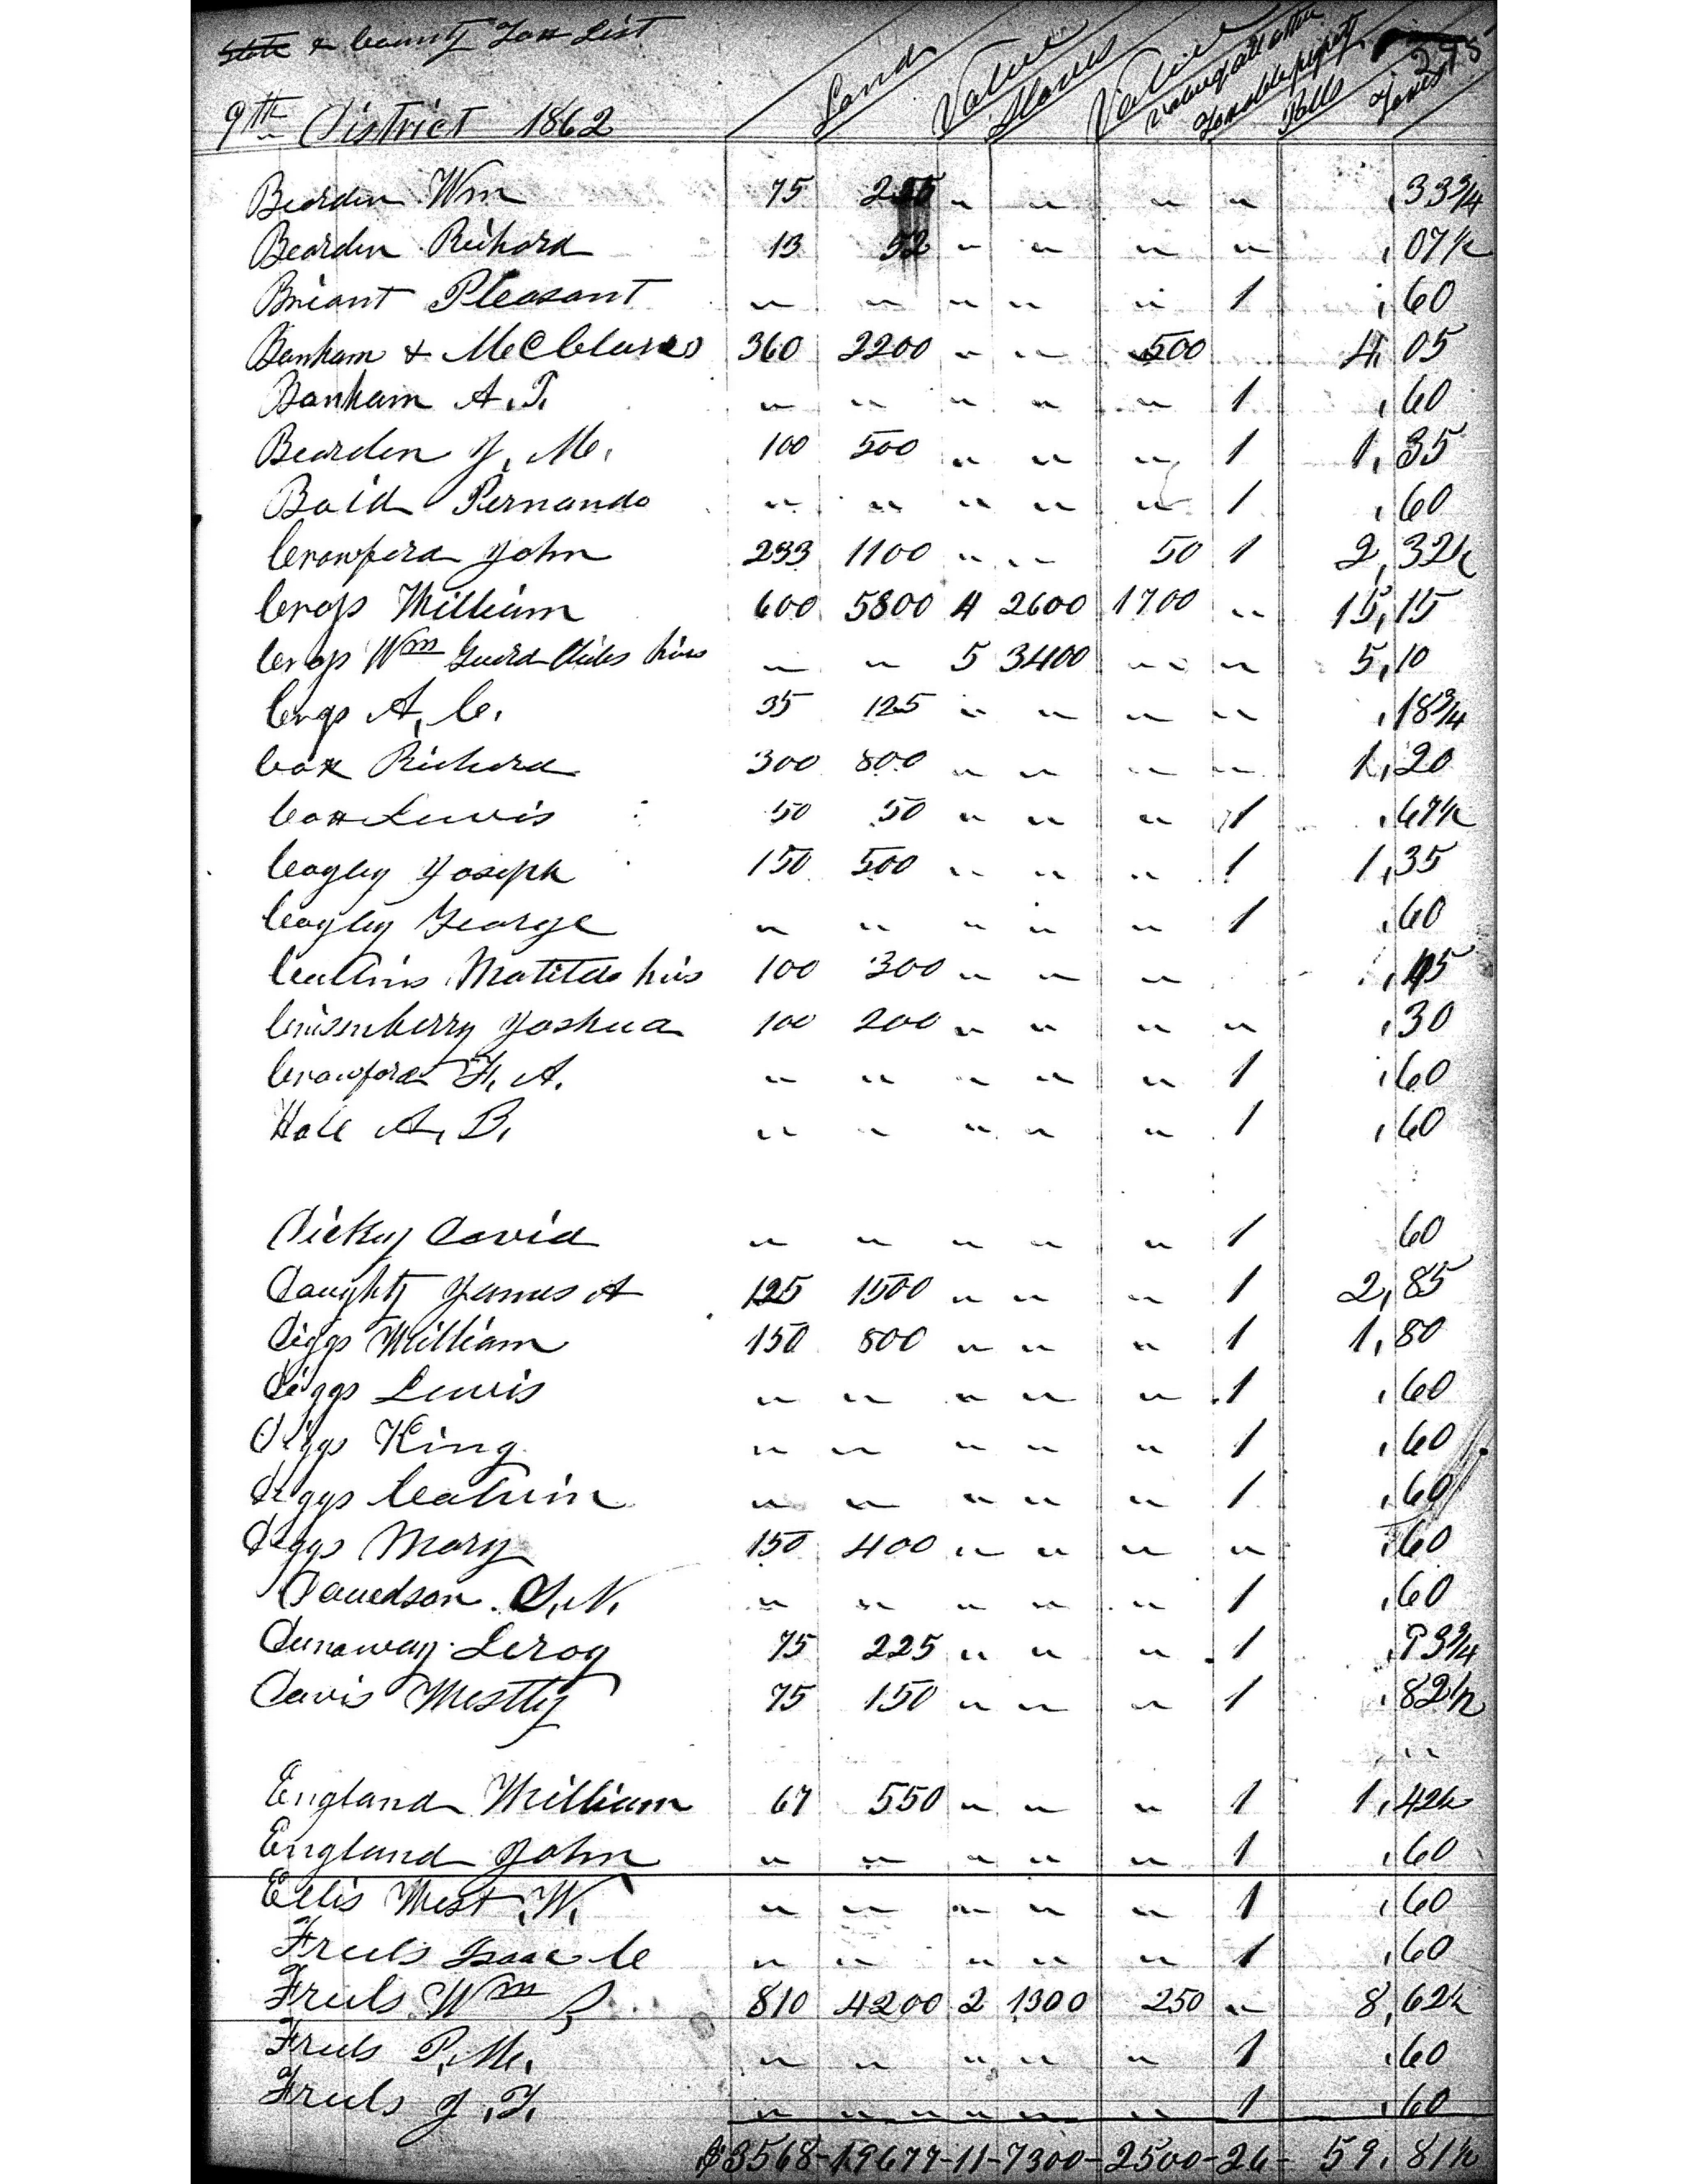 State & County Tax List
9th District 1862 Land Value Slaves Value Value of all other Taxable property Polls Taxes
Bearden Wm 75 225 " " " " ,33 3/4
Bearden Richard 13 52 " " " " ,07 1/2
Briant Pleasant " " " " " 1 ,60
Banham & McClures 360 2200 " " 500 4, 05
Banham A. T. " " " " " 1 ,60
Bearden J. M. 100 500 " " " 1 1, 35
Boid Pernando " " " " " 1 ,60
Crawford John 233 1100 " " 50 1 2, 32 1/2
Cross William 600 5800 4 2600 1700 " 15, 15
Cross Wm Guard Chiles hirs " " 5 3400 " " 5, 10
Cross A. C. 35 125 " " " " ,18 3/4
Cox Richard 300 800 " " " " 1, 20
Cox Lewis 50 50 " " " 1 ,67 1/2
Cagley Joseph 150 500 " " " 1 1, 35
Cagley George " " " " " 1 ,60
Matilda hirs 100 300 " " " ,45
Crisenberry Joshua 100 200 " " " " ,30
Crawford F. A. " " " " " 1 ,60
Hale A. B. " " " " " 1 ,60
Dicky David " " " " " 1 60
Daughty James A 125 1500 " " " 1 2, 85
Diggs William 150 800 " " " 1 1, 80
Diggs Lewis " " " " " 1 ,60
Diggs King " " " " " 1 ,60
Diggs Calvin " " " " " 1 ,60
Diggs Mary 150 400 " " " " ,60
Davedson S. N. " " " " " 1 ,60
Dunaway Leroy 75 225 " " " 1 ,93 3/4
Davis Westly 75 150 " " " 1 ,82 1/2
"
England William 67 550 " " " 1 1, 42 1/2
England John " " " " " 1 ,60
Ellis West W. " " " " " 1 ,60
Freels Isaac C " " " " " 1 ,60
Freels Wm S 810 4200 2 1300 250 " 8, 62 1/2
Freels P. M. " " " " " 1 ,60
Freels J. T. " " " " " 1 ,60
$3568-19677-11-7300-2500-26- 59, 81 1/2